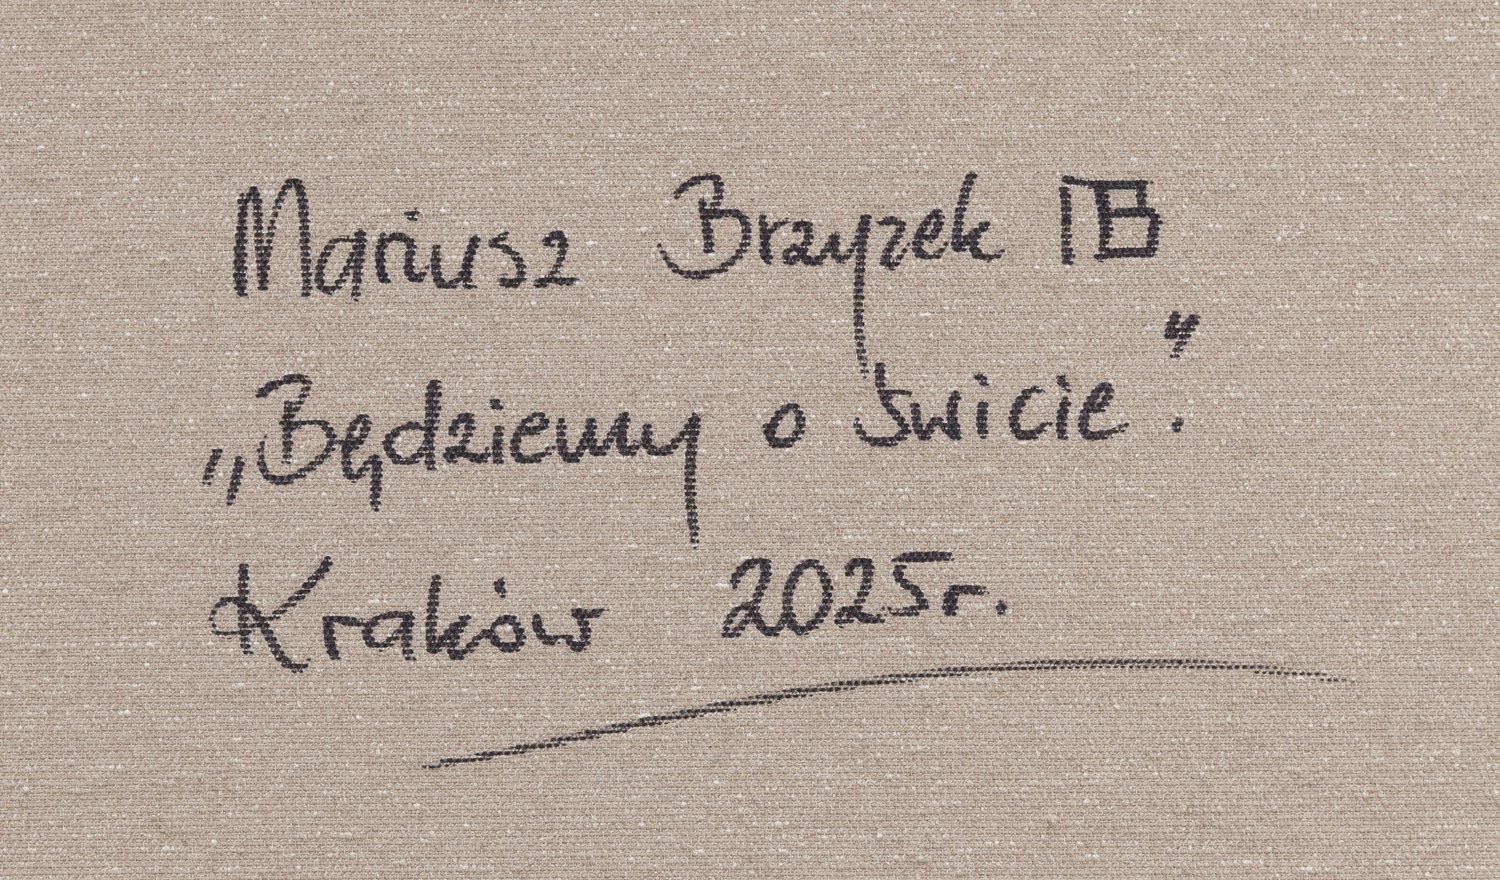 Mariusz Brzyzek
„Będziemy o świcie."
Kraków 2025r.